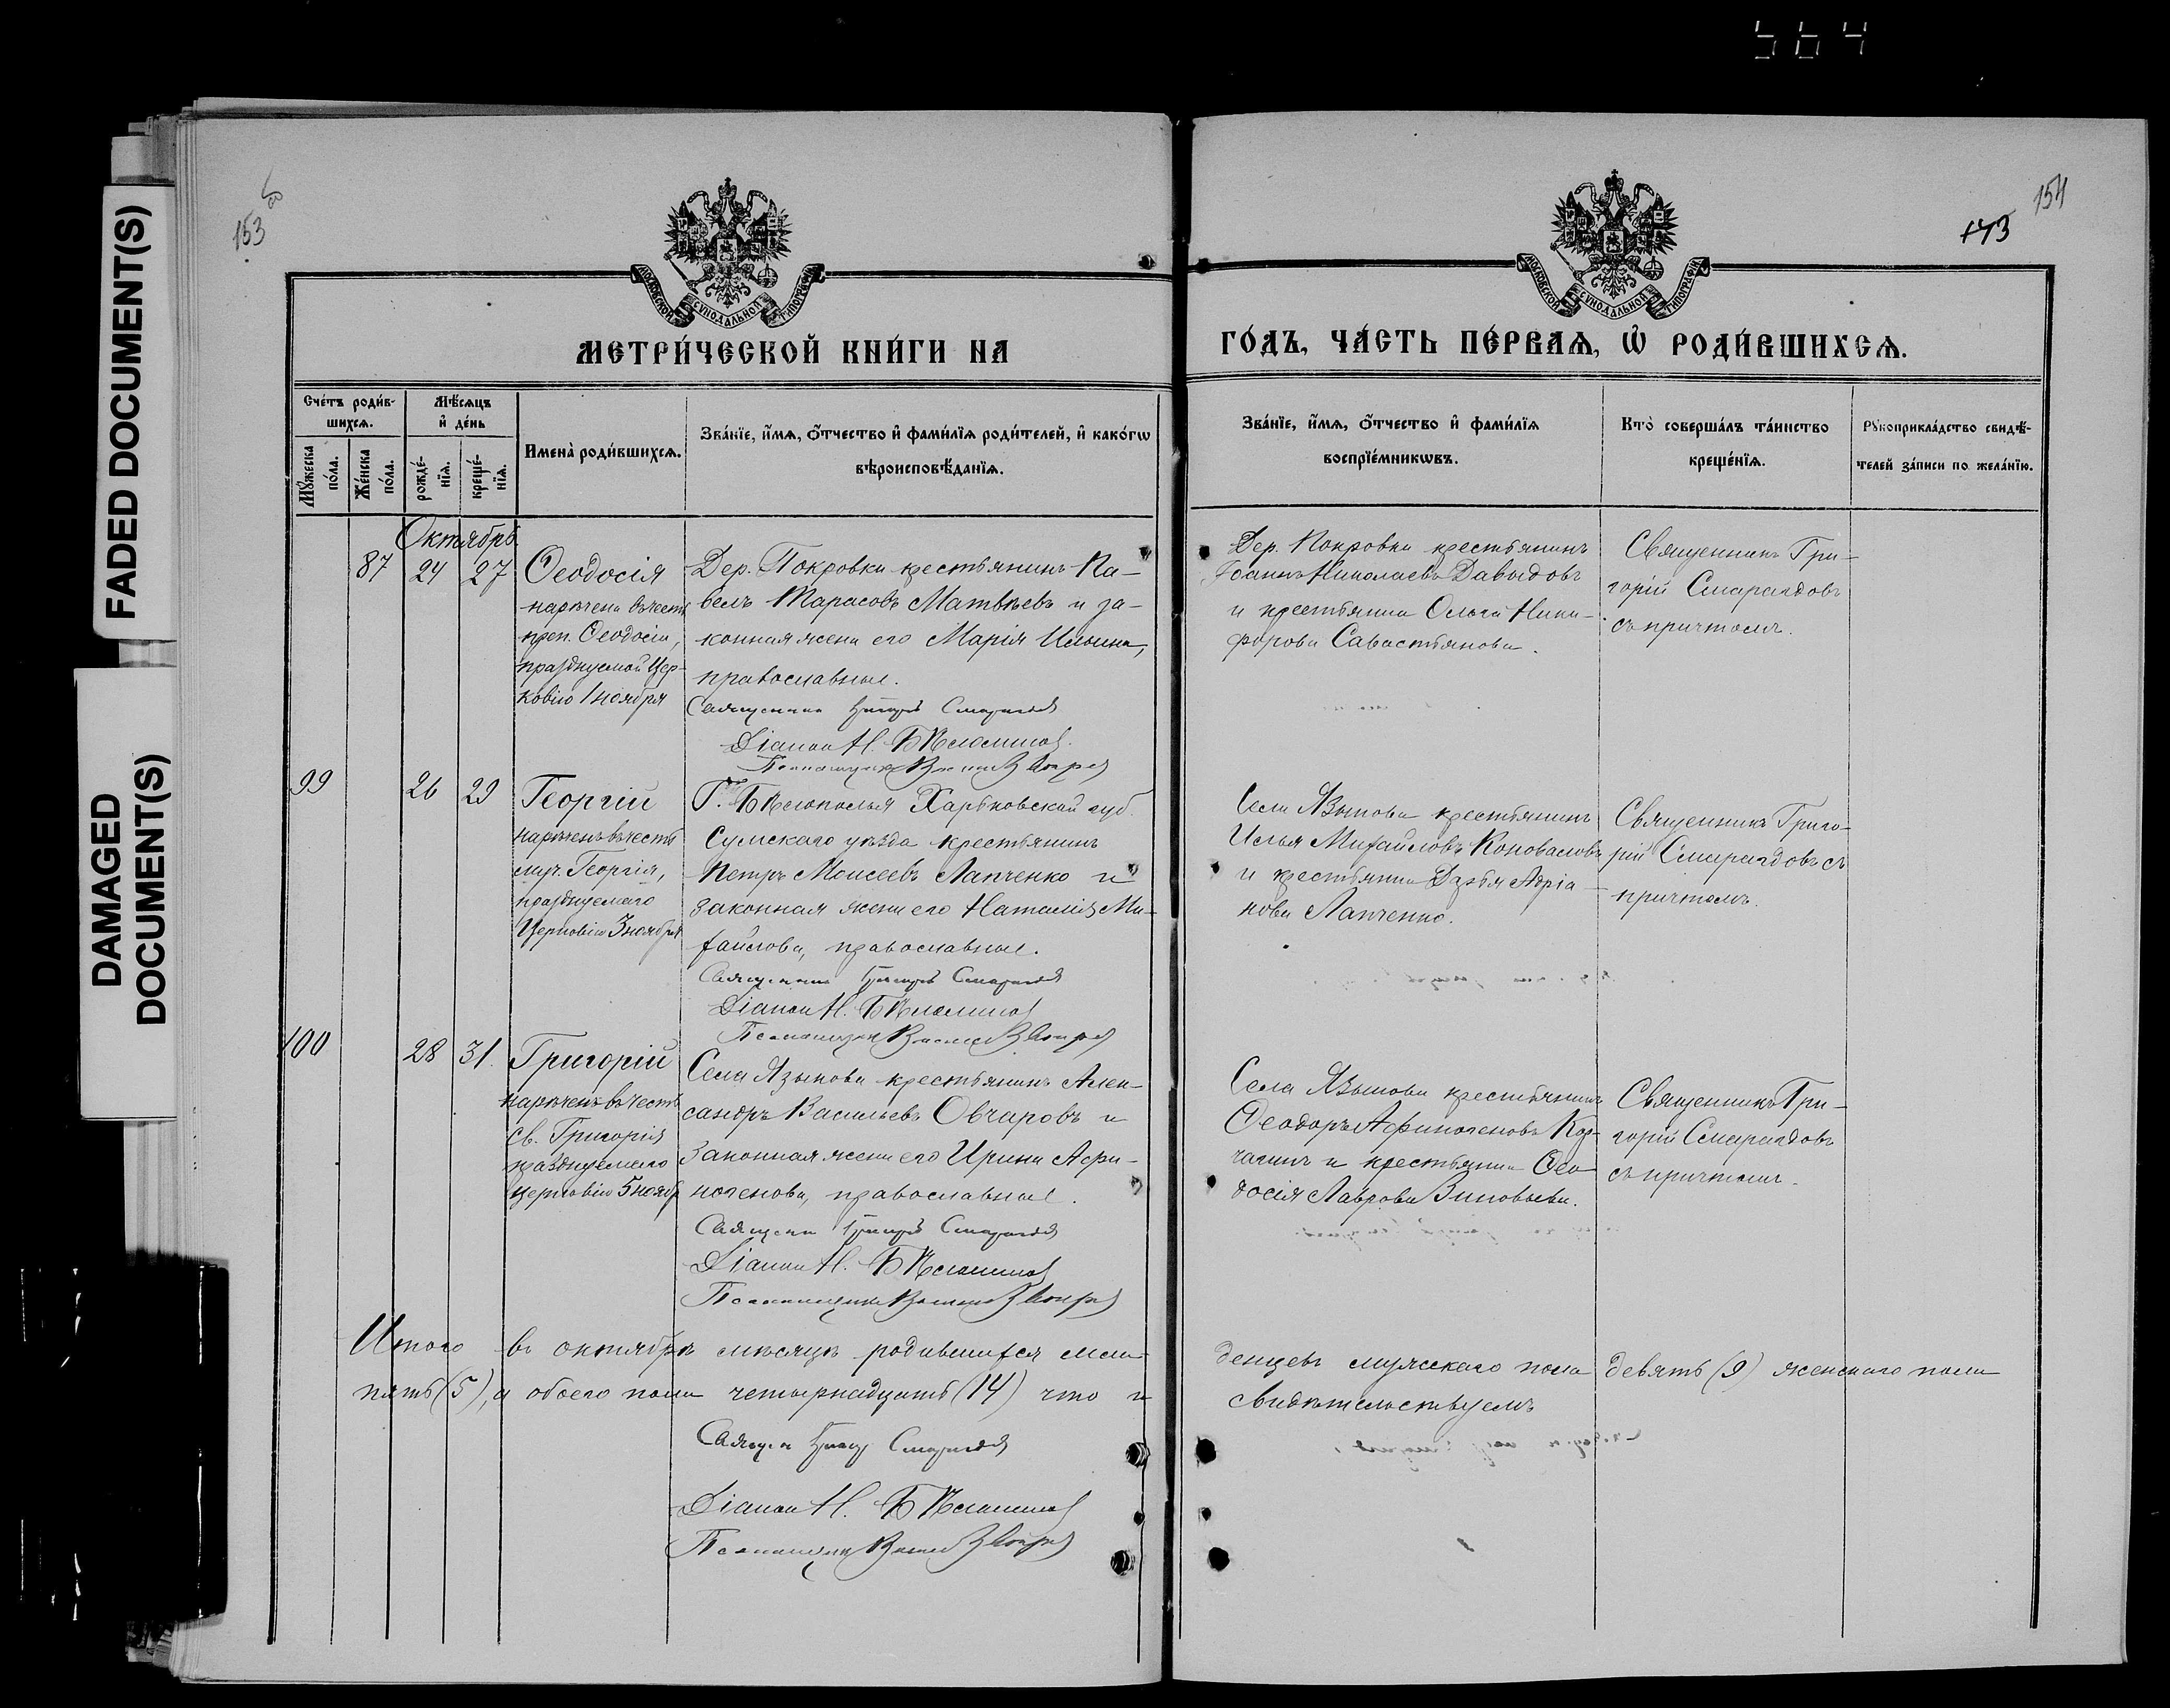 564
FADED DOCUMENT(S)
DAMAGED
DOCUMENT(S)
153
об
МОСКОВСКОЙ СѴНОДАЛЬНОЙ ТИПОГРАФІИ
МЕТРИ́ЧЕСКОЙ КНИ́ГИ НА
Сче́тъ роди́в-
шихсѧ.
Мѣ́сѧцъ
и҆ де́нь
Мꙋ́жеска
по́ла.
Же́нска
по́ла.
рожде́-
нїѧ.
креще́-
нїѧ.
Имена̀ роди́вшихсѧ.
Зва́нїе, и҆́мѧ, ѻ҆́тчество и҆ фами́лїѧ роди́телей, и҆ како́гѡ
вѣроисповѣ́данїѧ.
Октябрь
87 24 27
Ѳеодосія
наречена въ честь
преп. Ѳеодосіи,
празднуемой Цер-
ковію 1 ноября
Дер. Покровки крестьянинъ Па-
велъ Тарасовъ Матвѣевъ и за-
конная жена его Марія Ильина,
православные.
Священникъ Григорій Смарагдовъ
Діаконъ Н.
Псаломщикъ
99 26 29
Георгій
нареченъ въ честь
муч. Георгія,
празднуемаго
Церковію 3 ноября
Г. Бѣлополья Харьковской губ.
Сумскаго уѣзда крестьянинъ
Петръ Моисеевъ Лапченко и
законная жена его Наталія Ми-
хайлова, православные.
Священникъ Григорій Смарагдовъ
Діаконъ Н.
Псаломщикъ
100 28 31.
Григорій
нареченъ въ честь
св. Григорія
празднуемаго
церковію 5 нояб
Села Языкова крестьянинъ Алек-
сандръ Васильевъ Овчаровъ и
законная жена его Ирина Афи-
ногенова, православные.
Священникъ Григорій Смарагдовъ
Діаконъ Н.
Псаломщикъ
Итого въ октябрѣ мѣсяцѣ родившихся мла-
пять (5), а обоего пола четырнадцать (14) что и
Священникъ Григорій Смарагдовъ
Діаконъ Н.
Псаломщикъ
154
173
МОСКОВСКОЙ СѴНОДАЛЬНОЙ ТИПОГРАФІИ
ГО́ДЪ, ЧА́СТЬ ПЕ́РВАѦ, Ѡ҆ РОДИ́ВШИХСѦ.
Зва́нїе, и҆́мѧ, ѻ҆́тчество и҆ фами́лїѧ
воспрїе́мникѡвъ.
Кто̀ соверша́лъ та́инство
креще́нїѧ.
Рꙋкоприкла́дство свидѣ́-
телей за́писи по жела́нїю.
Дер. Покровки крестьянинъ
Іоаннъ Николаевъ Давыдовъ
и крестьянка Ольга Ники-
форова Савастьянова.
Священникъ Гри-
горій Смарагдовъ
съ причтомъ.
Села Языкова крестьянинъ
Илья Михайловъ Коноваловъ
и крестьянка Дарья Адріа-
нова Лапченко.
Священникъ Григо-
рій Смарагдовъ съ
причтомъ.
Села Языкова крестьянинъ
Ѳеодоръ Афиногеновъ Кор-
чагинъ и крестьянка Ѳео-
досія Лаврова Зиновьева.
Священникъ Гри-
горій Смарагдовъ
съ причтомъ.
денцевъ мужескаго пола девять (9) женскаго пола
свидѣтельствуемъ